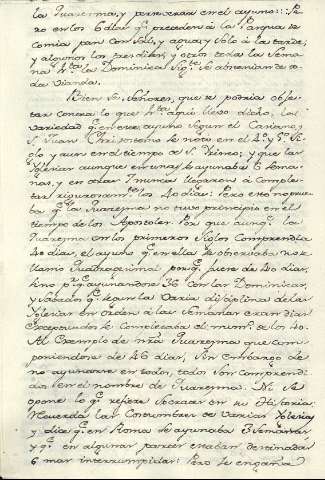 la Quaresma, y perseveran en el ayuno: Pe-
ro en los 6 dias qe. preceden à la Pasqua se
comia pan con Sal, y agua, y solo à la tarde,
y algunos los pasaban, y otros toda la Sema-
na hta. la Dominica Sigte. se abstenian de to-
da vianda.
Bien se, Señores, que se podria obje-
tar contra lo que hta. aqui llevo dicho, la
variedad qe. en este ayuno segun el Casiano,
S. Juan Chrisostomo se nota en el 4o. y 5o. Si-
glo y aun en el tiempo de S. Irineo; y que las
Iglesias aunque en unas se ayunaba 6 Sema-
nas, y en otras 7 nunca llegaron à comple-
tar rigurosamte. los 40 dias: Pero esto no prue-
ba qe. la Quaresma no tuvo principio en el
tiempo de los Apostoles. Por que aunqe. la
Quaresma en los primeros Siglos comprendia
40 dias, el ayuno qe. en ella se observaba no se
llamó Quadragesimal porqe. fuese de 40 dias,
sino pr. qe. ayunandose 36 con las Dominicas,
y Sabados qe. segun la varia disciplina de las
Iglesias en orden à las Semanas eran dias
exceptuados se completaba el numo. de los 40.
Al Exemplo de nra. Quaresma que com-
poniendose de 46 dias, sin embargo de
no ayunarse en todos, todos son comprendi-
dos en el nombre de Quaresma. No se
opone lo qe. refiere Socrates en su Historia,
Recuerda las Costumbres de varias Iglesias
y dia qe. en Roma se ayunaba 3 Semanas
y qe. en algunas partes estaban destinadas
6 mas interrumpidas: Pero se engaña